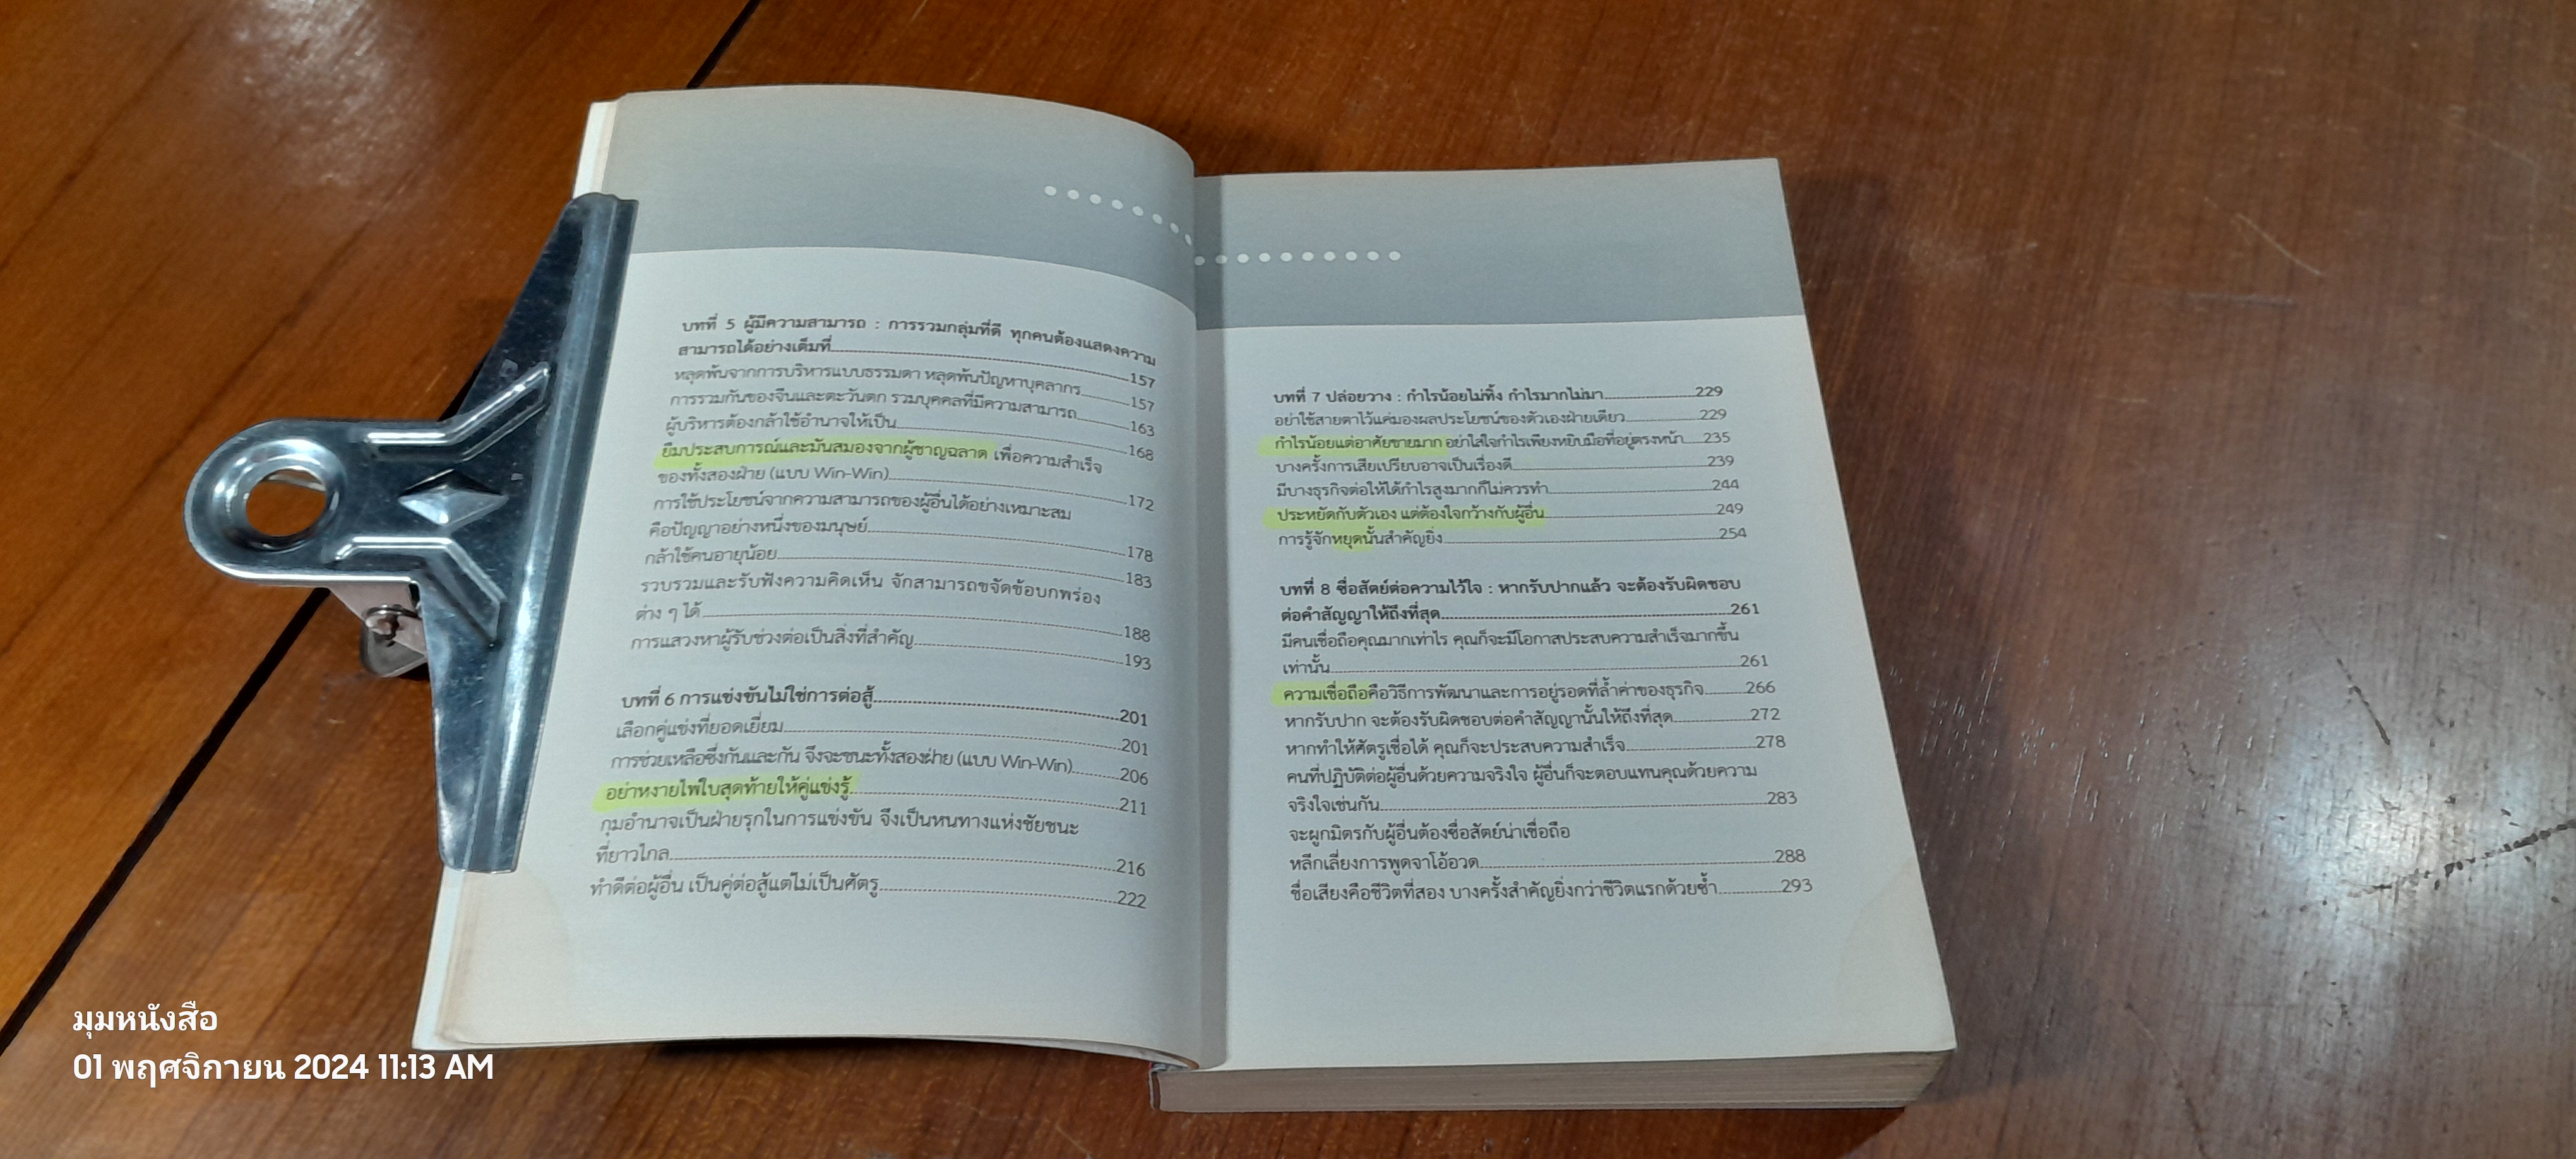 บทที่ 5 ผู้มีความสามารถ : การรวมกลุ่มที่ดี ทุกคนต้องแสดงความ
สามารถได้อย่างเต็มที่.....157
หลุดพ้นจากการบริหารแบบธรรมดา หลุดพ้นปัญหาบุคลากร.....157
การรวมกันของจีนและตะวันตก รวมบุคคลที่มีความสามารถ.....163
ผู้บริหารต้องกล้าใช้อำนาจให้เป็น.....168
ยืมประสบการณ์และมันสมองจากผู้ชาญฉลาด เพื่อความสำเร็จ
ของทั้งสองฝ่าย (แบบ Win-Win).....172
การใช้ประโยชน์จากความสามารถของผู้อื่นได้อย่างเหมาะสม
คือปัญญาอย่างหนึ่งของมนุษย์.....178
กล้าใช้คนอายุน้อย.....183
รวบรวมและรับฟังความคิดเห็น จักสามารถขจัดข้อบกพร่อง
ต่าง ๆ ได้.....188
การแสวงหาผู้รับช่วงต่อเป็นสิ่งที่สำคัญ.....193
บทที่ 6 การแข่งขันไม่ใช่การต่อสู้.....201
เลือกคู่แข่งที่ยอดเยี่ยม.....201
การช่วยเหลือซึ่งกันและกัน จึงจะชนะทั้งสองฝ่าย (แบบ Win-Win).....206
อย่าหงายไพ่ใบสุดท้ายให้คู่แข่งรู้.....211
กุมอำนาจเป็นฝ่ายรุกในการแข่งขัน จึงเป็นหนทางแห่งชัยชนะ
ที่ยาวไกล.....216
ทำดีต่อผู้อื่น เป็นคู่ต่อสู้แต่ไม่เป็นศัตรู.....222
บทที่ 7 ปล่อยวาง : กำไรน้อยไม่ทิ้ง กำไรมากไม่มา.....229
อย่าใช้สายตาไว้แค่มองผลประโยชน์ของตัวเองฝ่ายเดียว.....229
กำไรน้อยแต่อาศัยขายมาก อย่าใส่ใจกำไรเพียงหยิบมือที่อยู่ตรงหน้า.....235
บางครั้งการเสียเปรียบอาจเป็นเรื่องดี.....239
มีบางธุรกิจต่อให้ได้กำไรสูงมากก็ไม่ควรทำ.....244
ประหยัดกับตัวเอง แต่ต้องใจกว้างกับผู้อื่น.....249
การรู้จักหยุดนั้นสำคัญยิ่ง.....254
บทที่ 8 ซื่อสัตย์ต่อความไว้ใจ : หากรับปากแล้ว จะต้องรับผิดชอบ
ต่อคำสัญญาให้ถึงที่สุด.....261
มีคนเชื่อถือคุณมากเท่าไร คุณก็จะมีโอกาสประสบความสำเร็จมากขึ้น
เท่านั้น.....261
ความเชื่อถือคือวิธีการพัฒนาและการอยู่รอดที่ล้ำค่าของธุรกิจ.....266
หากรับปาก จะต้องรับผิดชอบต่อคำสัญญานั้นให้ถึงที่สุด.....272
หากทำให้ศัตรูเชื่อได้ คุณก็จะประสบความสำเร็จ.....278
คนที่ปฏิบัติต่อผู้อื่นด้วยความจริงใจ ผู้อื่นก็จะตอบแทนคุณด้วยความ
จริงใจเช่นกัน.....283
จะผูกมิตรกับผู้อื่นต้องซื่อสัตย์น่าเชื่อถือ
หลีกเลี่ยงการพูดจาโอ้อวด.....288
ชื่อเสียงคือชีวิตที่สอง บางครั้งสำคัญยิ่งกว่าชีวิตแรกด้วยซ้ำ.....293
มุมหนังสือ
01 พฤศจิกายน 2024 11:13 AM